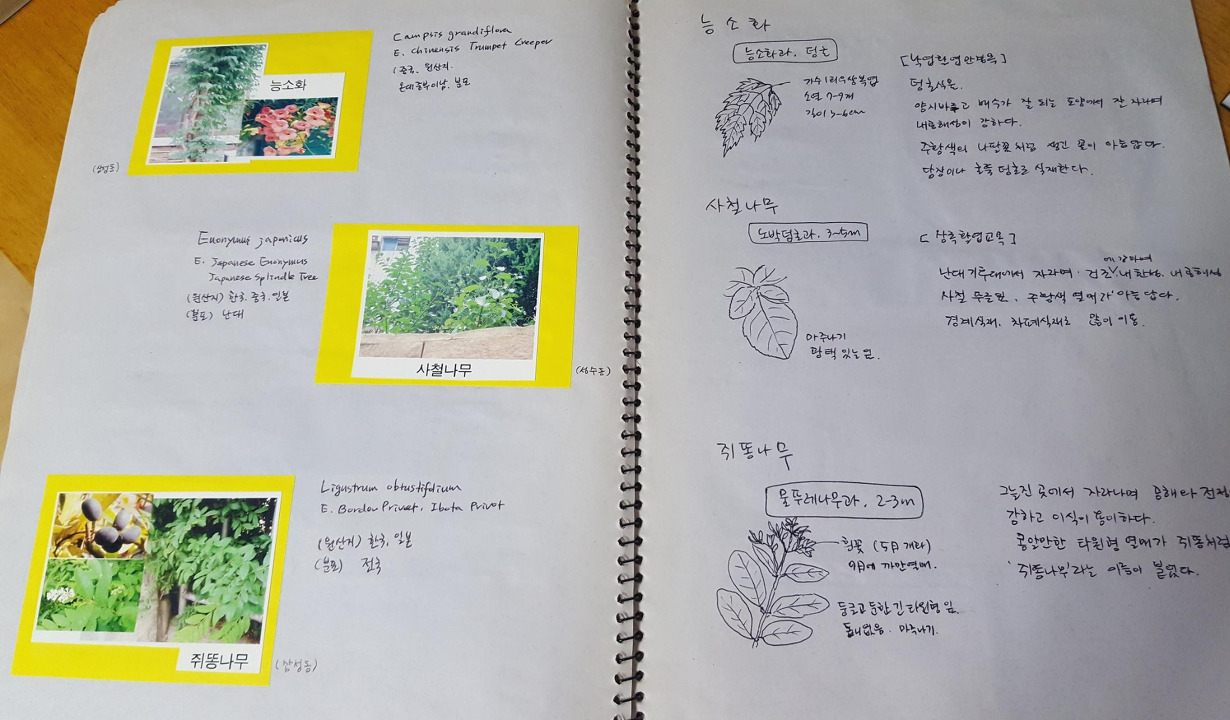 Campsis grandiflora
E. Chinensis Trumpet Creeper
(중국, 원산지.
온대중부이남, 분포
능소화
(삼성동)
Euonymus japonicus
E. Japanese Euonymus
Japanese Spindle Tree
(원산지) 한국, 중국, 일본
(분포) 난대
사철나무
(성수동)
Ligustrum obtustifolium
E. Border Privet, Ibota Privet
(원산지) 한국, 일본
(분포) 전국
쥐똥나무
(삼성동)
능소화
능소화과, 덩굴
기수1회우상복엽
소엽 7-9개
길이 3-6cm
[낙엽활엽만경목]
덩굴식물.
양지바르고 배수가 잘 되는 토양에서 잘 자라며
내공해성이 강하다.
주황색의 나팔꽃처럼 생긴 꽃이 아름답다.
담장이나 녹음 덩굴로 식재한다.
사철나무
노박덩굴과, 3~5m
[상록활엽관목]
난대기후대에서 자라며. 건조에 강하며 내한성, 내공해성
사철 푸른잎, 주황색 열매가 아름답다.
경계식재, 차폐식재로 많이 이용.
마주나기
광택 있는 잎.
쥐똥나무
물푸레나무과, 2-3m
흰꽃 (5月 개화)
9月에 까만열매.
둥글고 둔한 긴 타원형 잎.
톱니없음. 마주나기.
그늘진 곳에서 자라나며 공해와 전정
강하고 이식이 용이하다.
콩알만한 타원형 열매가 쥐똥처럼
'쥐똥나무'라는 이름이 붙었다.